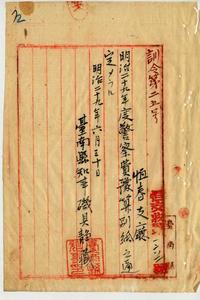 訓令第二五号
恒春支廳
明治二十九年度警察費豫算別紙之通
定メラル
明治二十九年六月三十日
臺南縣知事磯貝静藏